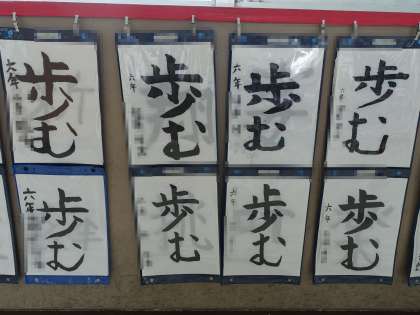 歩む
六年
歩む
六年
歩む
六年
歩む
六年
歩む
六年
歩む
歩む
六年
歩む
六年